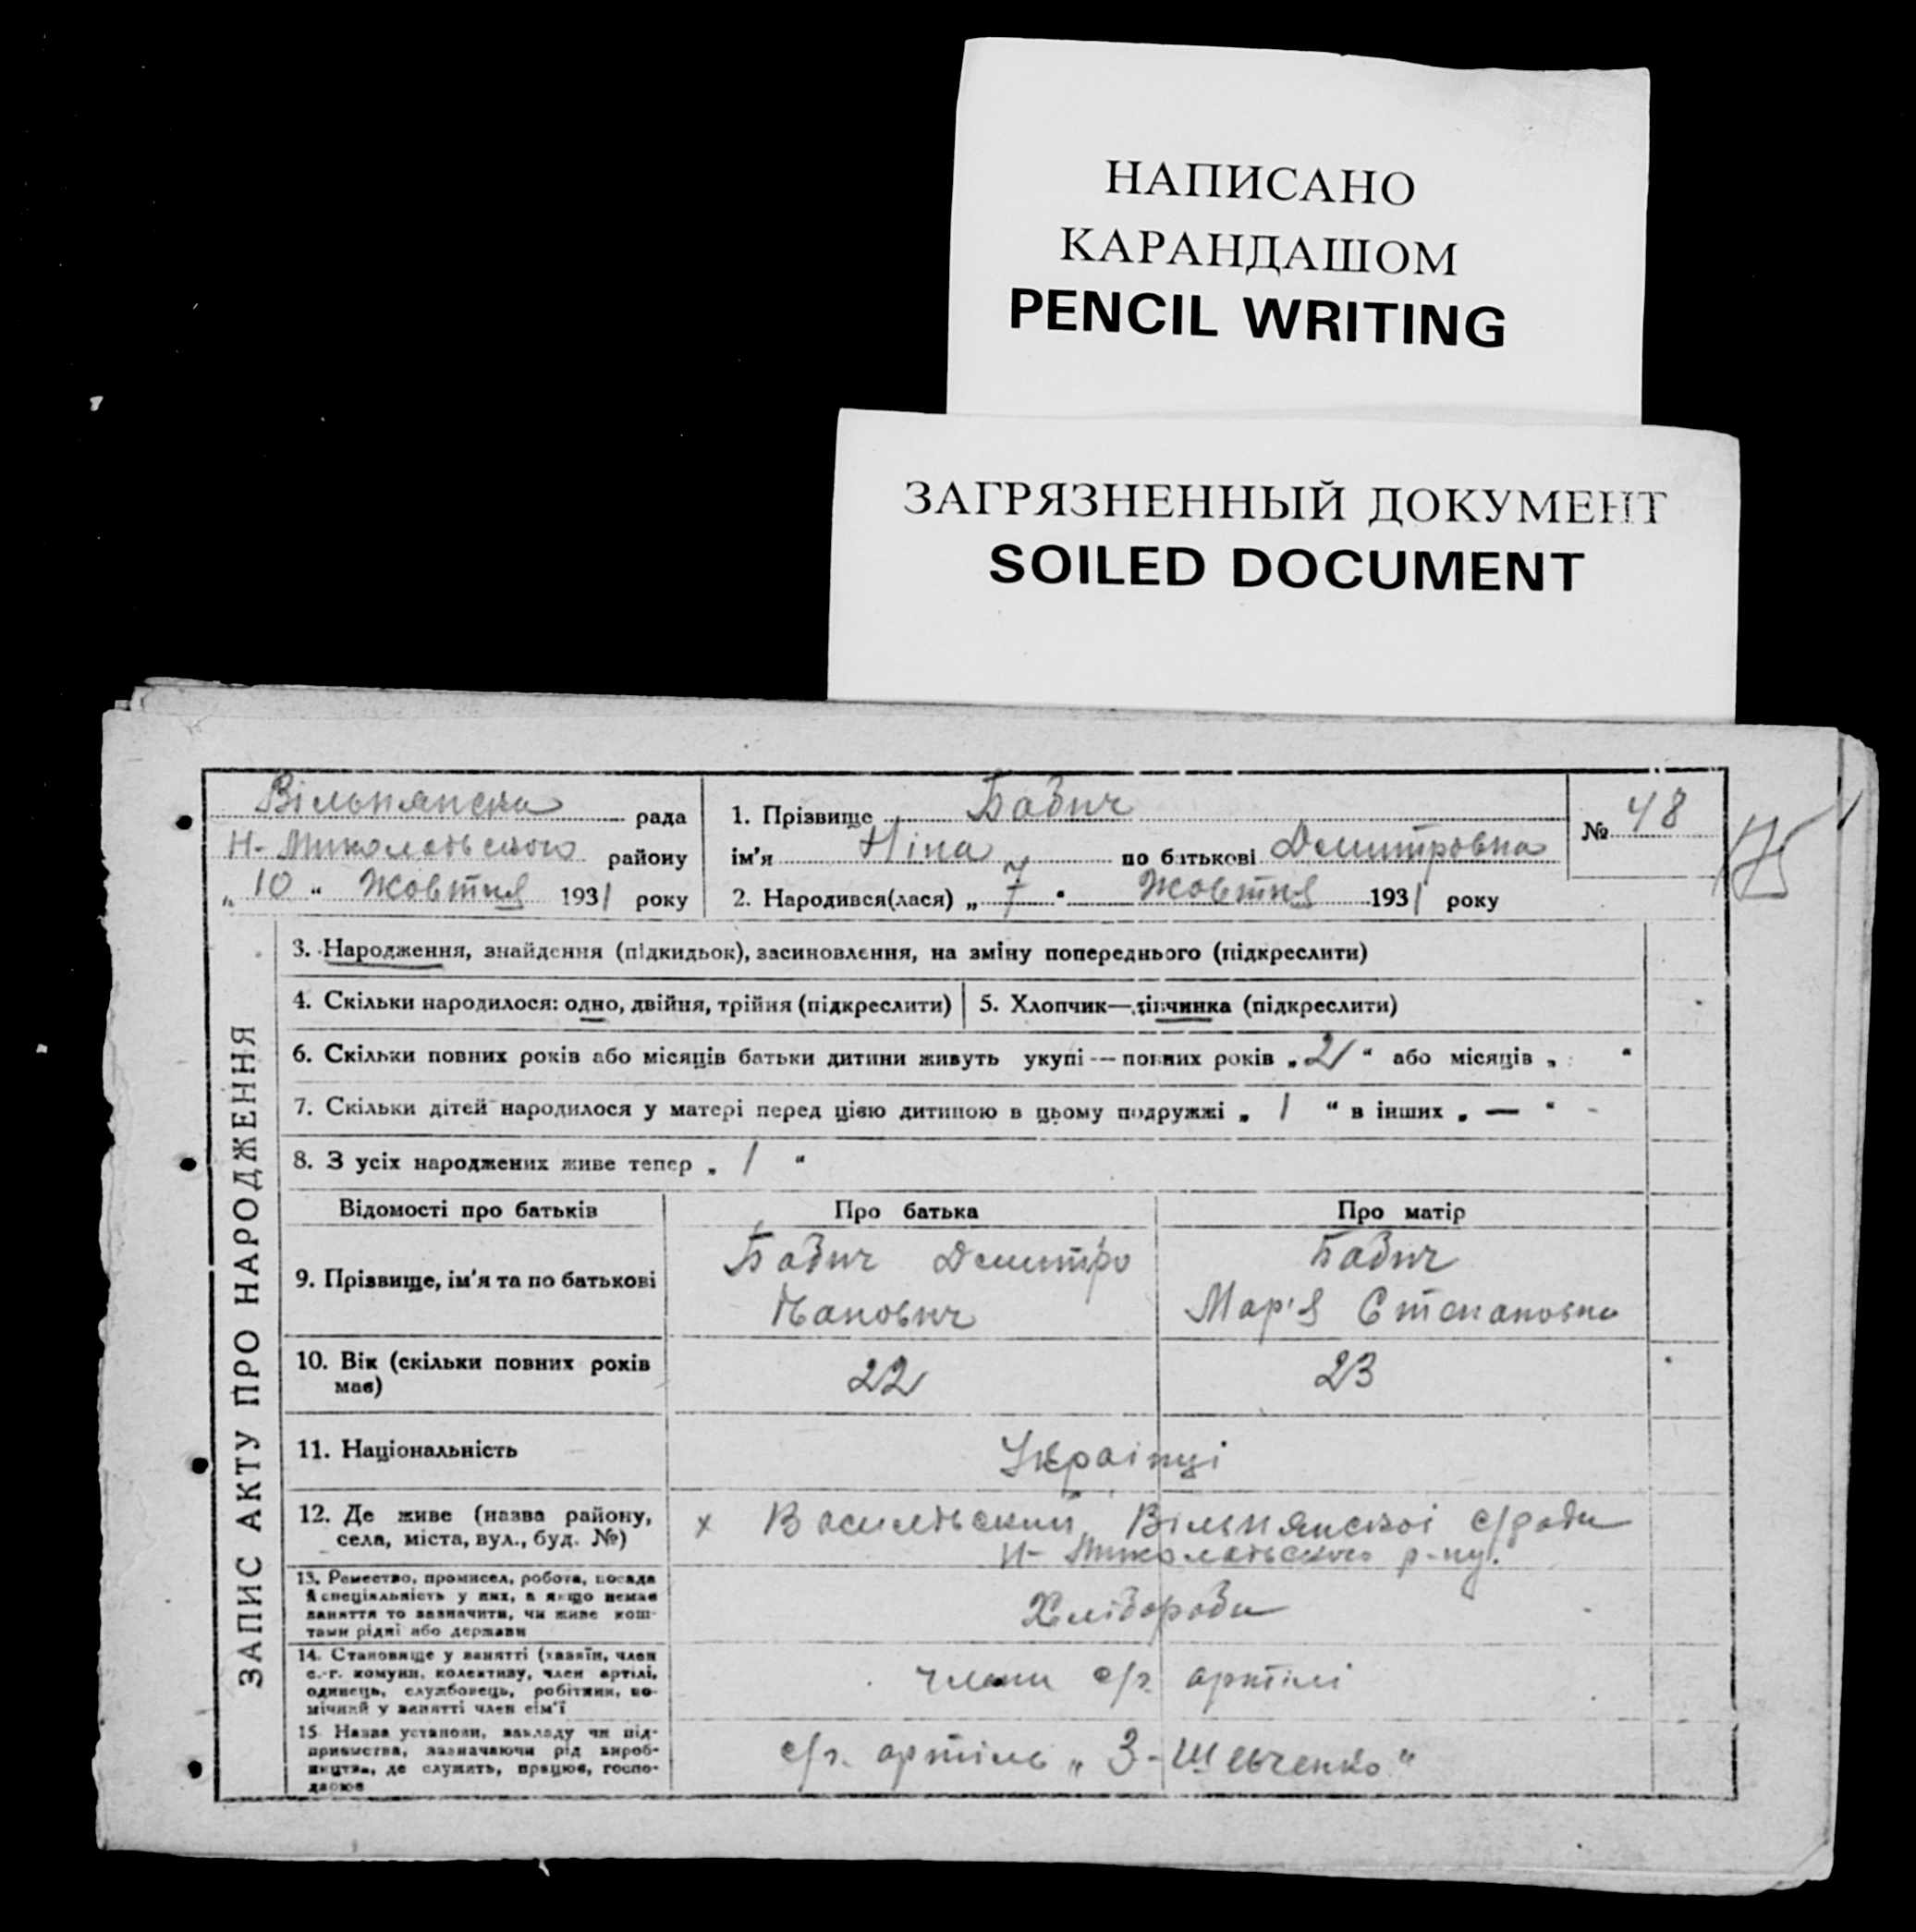 НАПИСАНО
КАРАНДАШОМ
PENCIL WRITING
ЗАГРЯЗНЕННЫЙ ДОКУМЕНТ
SOILED DOCUMENT
Вільнянська рада
Н-Миколаївського району
„ 10 “ Жовтня 1931 року
1. Прізвище Бабич
ім'я Ніна по батькові Демитровна
2. Народився(лася) „ 7 “ Жовтня 1931 року
№ 48
175
ЗАПИС АКТУ ПРО НАРОДЖЕННЯ
3. Народження, знайдення (підкидьок), засиновлення, на зміну попереднього (підкреслити)
4. Скільки народилося: одно, двійня, трійня (підкреслити) 5. Хлопчик—дівчинка (підкреслити)
6. Скільки повних років або місяців батьки дитини живуть укупі — повних років „ 2 “ або місяців „ “
7. Скільки дітей народилося у матері перед цією дитиною в цьому подружжі „ 1 “ в інших „ — “
8. З усіх народжених живе тепер „ 1 “
Відомості про батьків Про батька Про матір
9. Прізвище, ім'я та по батькові
Бабич Демитро
Іванович
Бабич
Мар'я Степановна
10. Вік (скільки повних років
має)
22
23
11. Національність
Українці
12. Де живе (назва району,
села, міста, вул., буд. №)
х Василівський, Вільнянської с/ради
Н-Миколаївського р-ну.
13. Ремество, промисел, робота, посада
й спеціяльність у них, а якщо немає
заняття то зазначити, чи живе кош-
тами рідні або держави
Хлібороби
14. Становище у занятті (хазяїн, член
с.-г. комуни, колективу, член артілі,
одинець, службовець, робітник, по-
мічний у занятті член сім'ї
члени с/г. артілі
15 Назва установи, закладу чи під-
приємства, зазначаючи рід вироб-
ництва, де служить, працює, госпо-
дарює
с/г. артіль „ З-Шевченко “